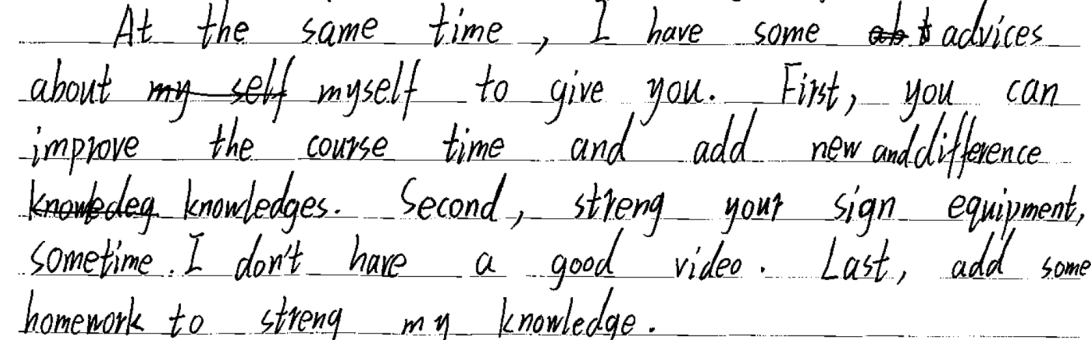 At the same time, I have some advices
about my self myself to give you. First, you can
improve the course time and add new and difference
knowledges. Second, streng your sign equipment,
sometime. I don't have a good video. Last, add some
homework to streng my knowledge.